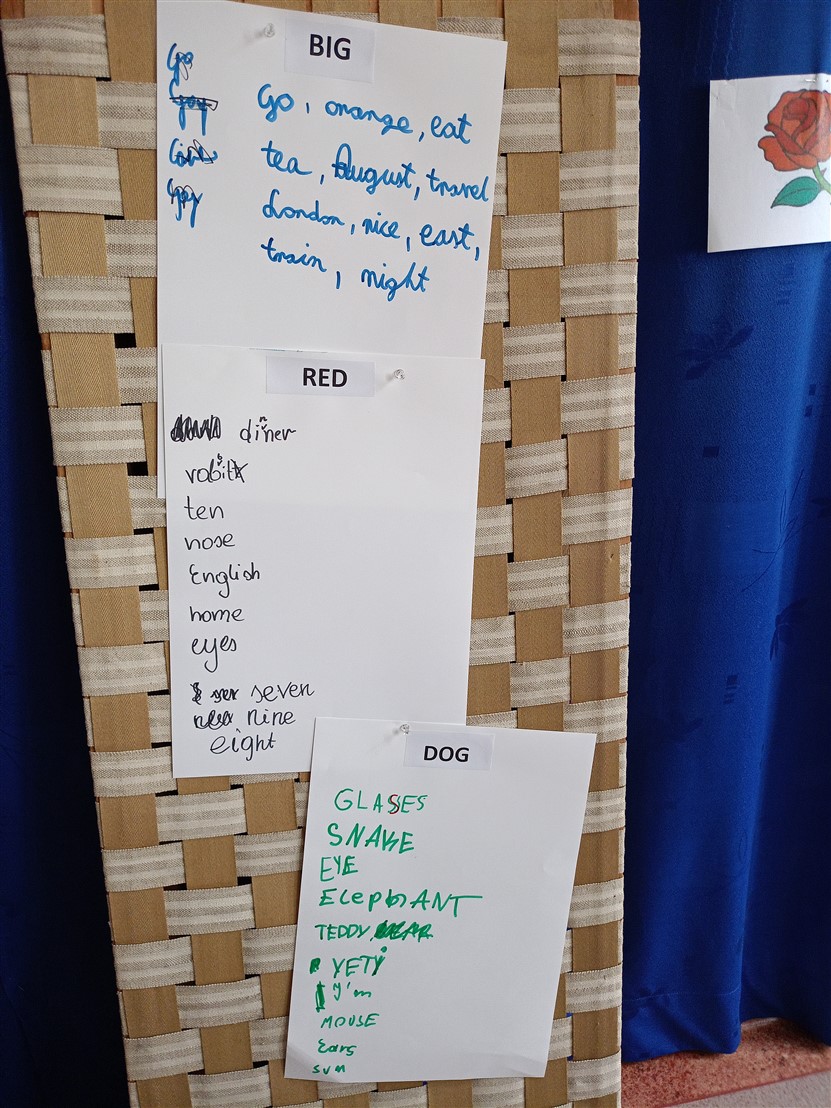 BIG
Go
Go, orange, eat
tea, August, travel
London, nice, east,
train, night
RED
dinner
rabbit
ten
nose
English
home
eyes
seven
nine
eight
DOG
GLASSES
SNAKE
EYE
ElephANT
TEDDY
YETi
y'm
MOUSE
Ears
sun